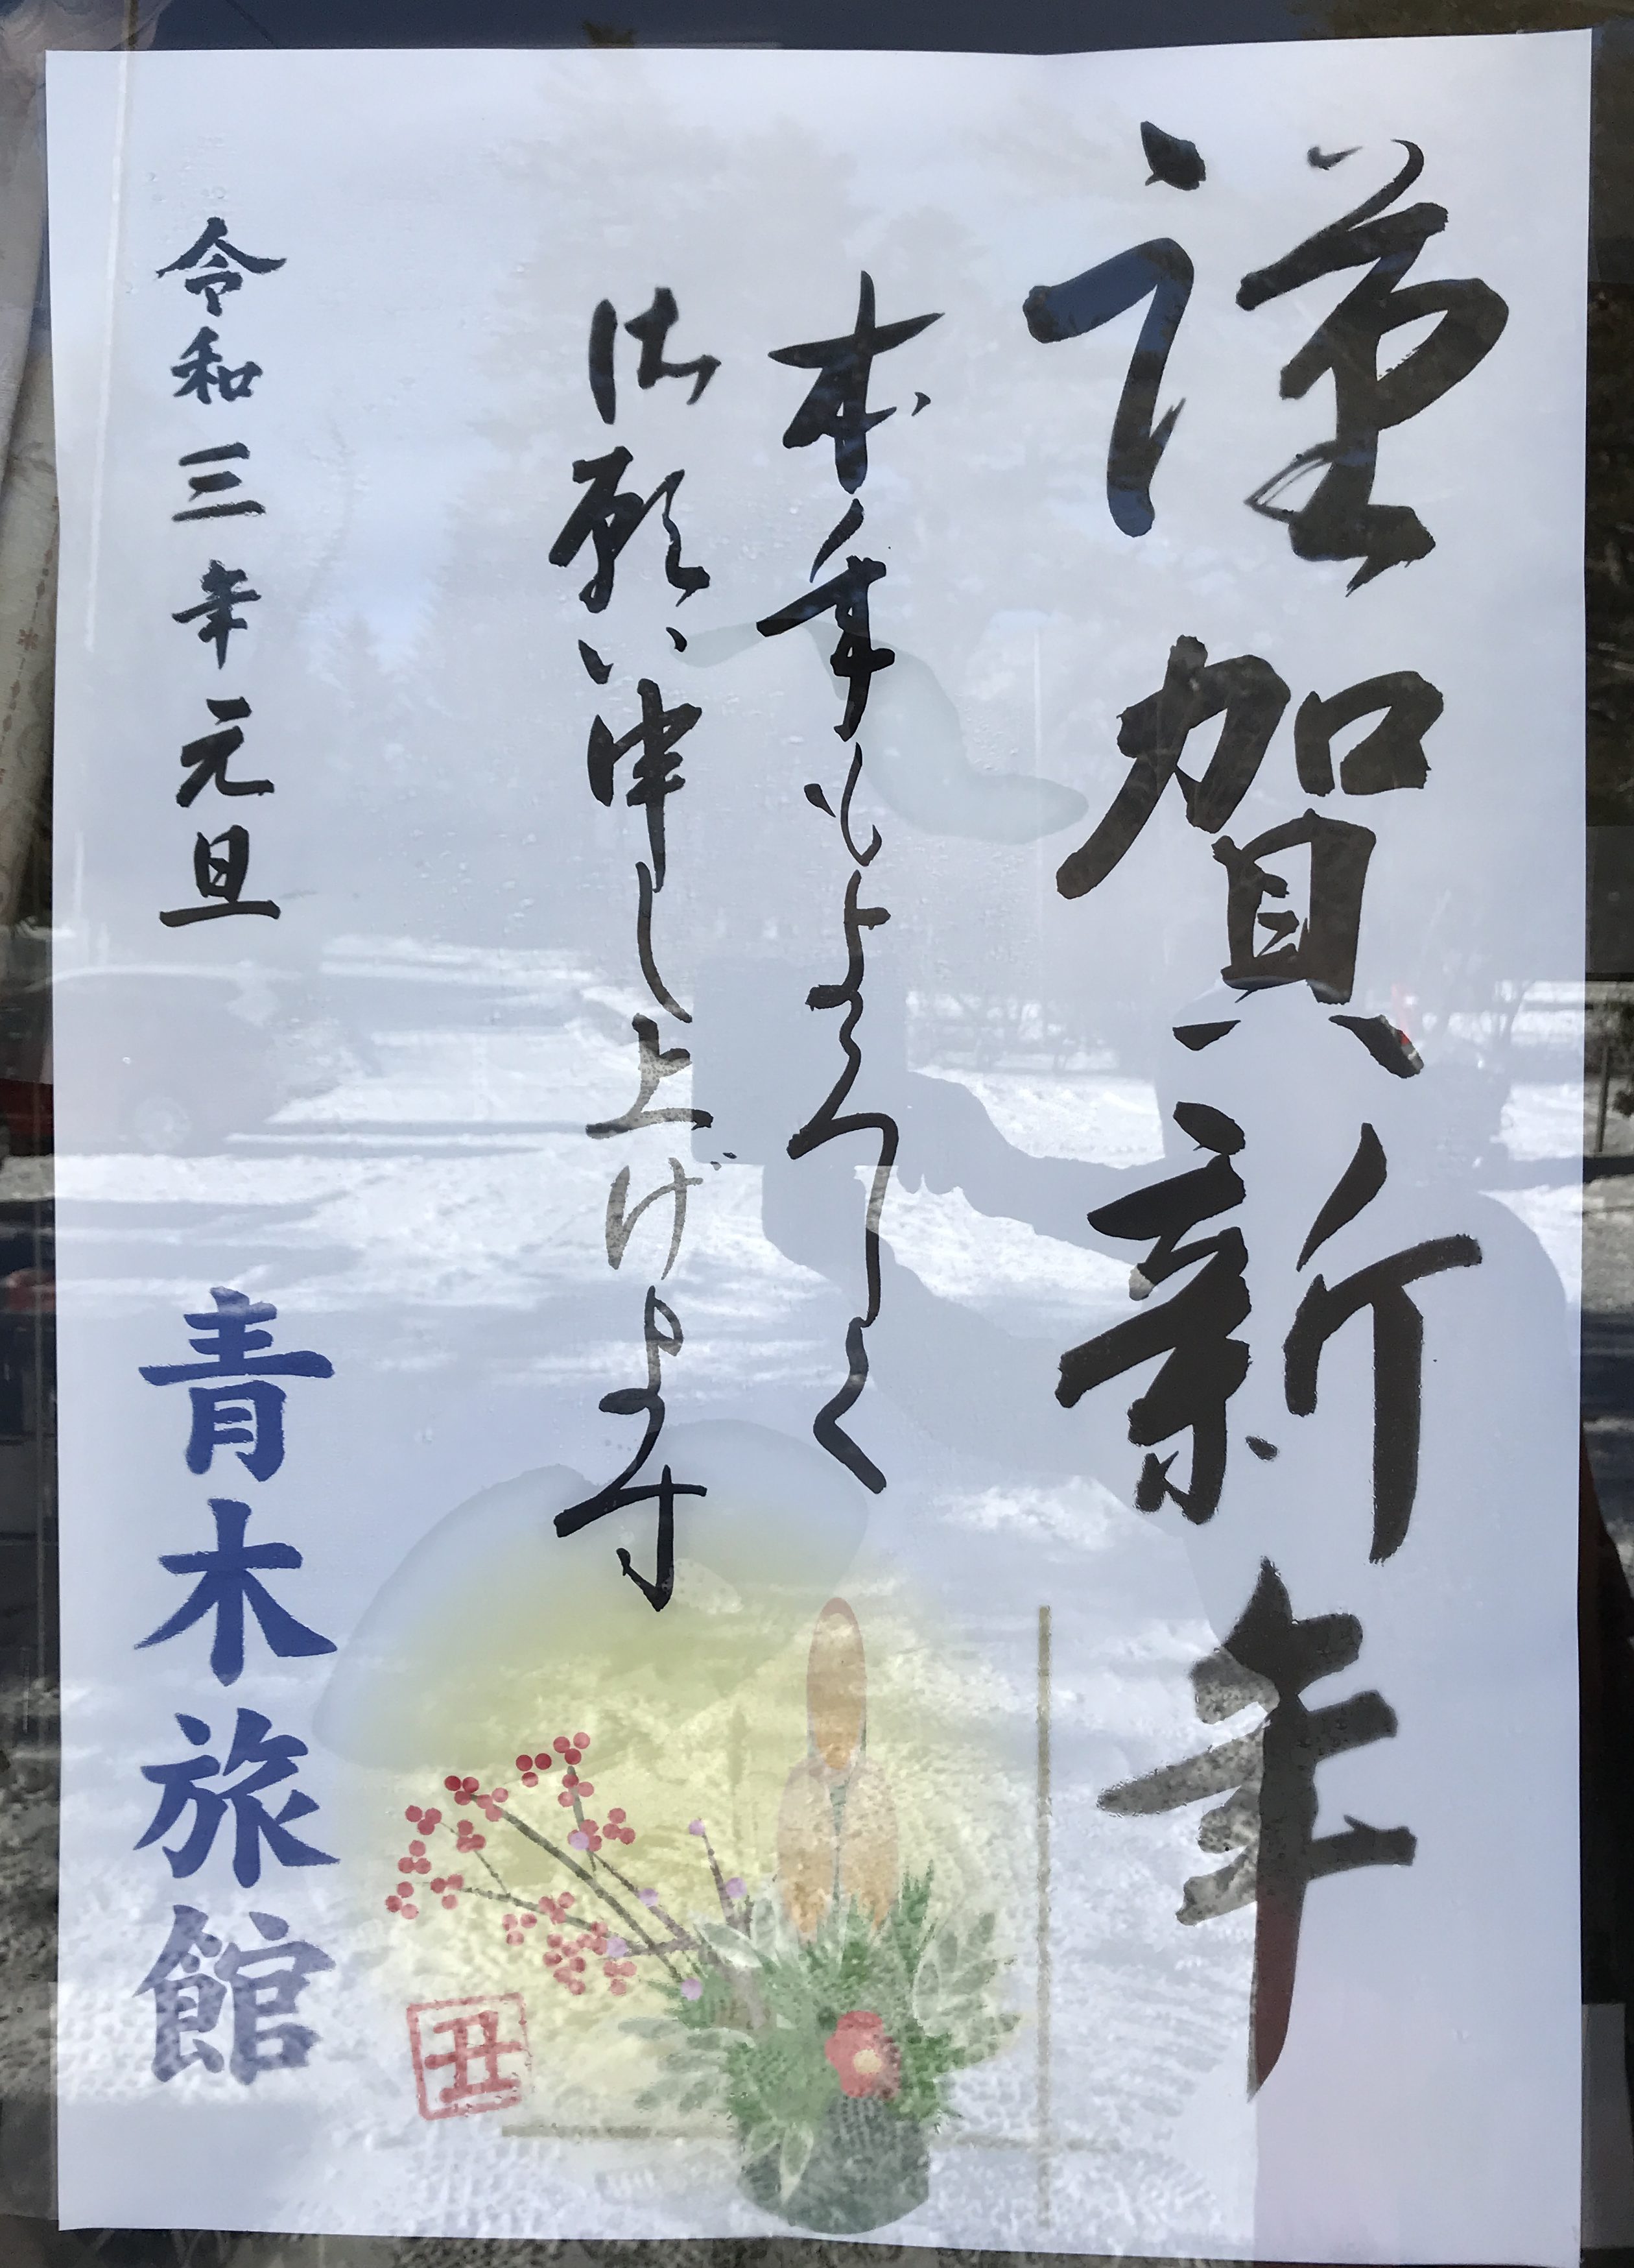 謹賀新年
本年もよろしく
御願い申し上げます
令和三年元旦
青木旅館
丑